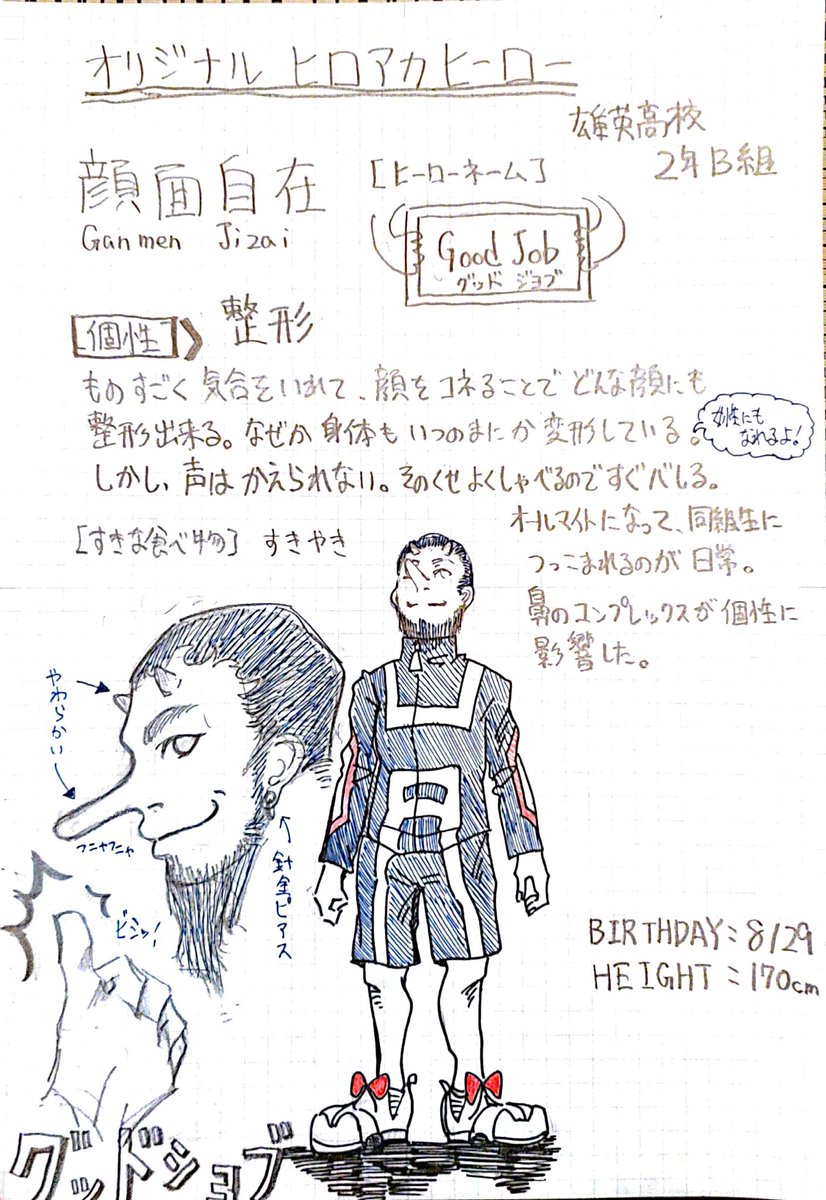 オリジナル ヒロアカヒーロー
雄英高校
2年B組
顔面自在
Ganmen Jizai
[ヒーローネーム]
Good Job
グッド ジョブ
[個性] 整形
ものすごく気合をいれて、顔をコネることでどんな顔にも
整形出来る。なぜか身体もいつのまにか変形している。
女性にも
なれるよ!
しかし、声はかえられない。そのくせよくしゃべるのですぐバレる。
オールマイトになって、同級生に
つっこまれるのが日常。
[すきな食べ物] すきやき
鼻のコンプレックスが個性に
影響した。
やわらかい
フニャフニャ
針金ピアス
ビシッ!
BIRTHDAY: 8/29
HEIGHT: 170cm
グッドジョブ